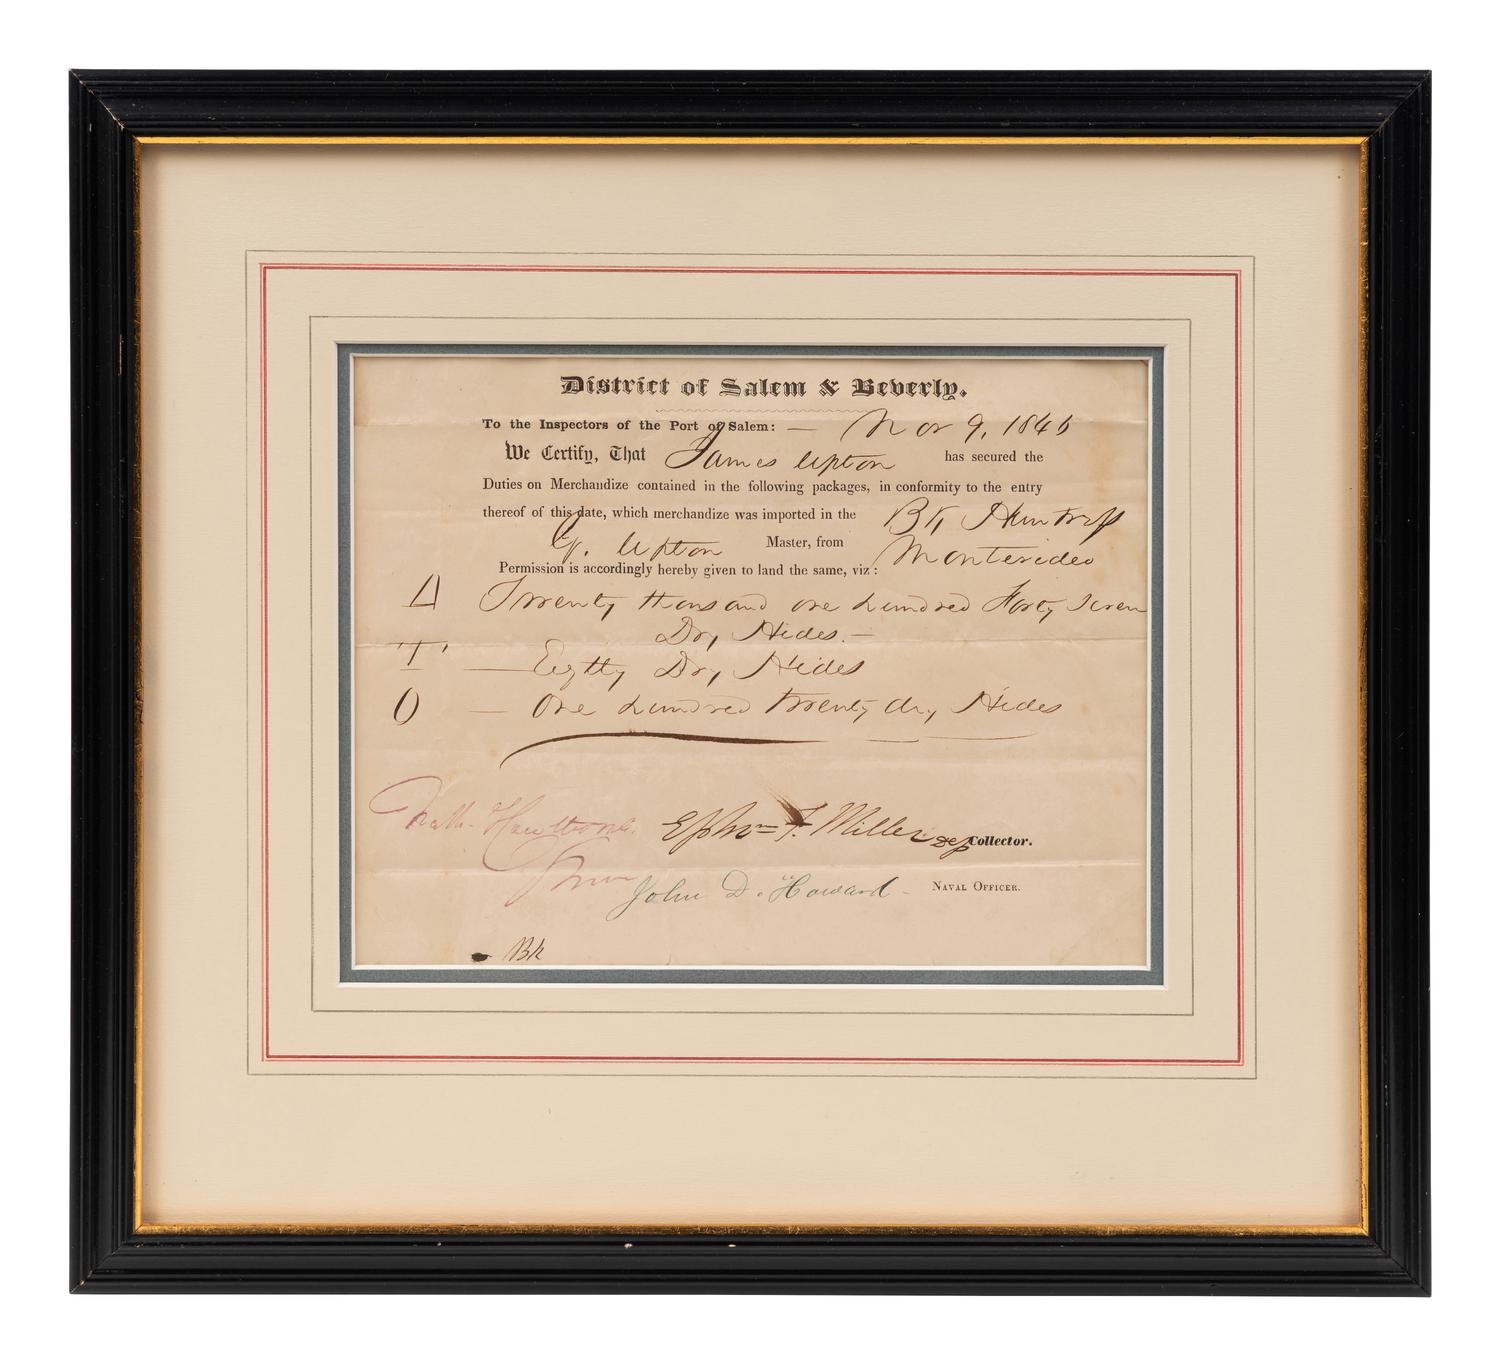 District of Salem & Beverly.
To the Inspectors of the Port of Salem: — Nov 9, 1846
We Certify, That James Upton has secured the
Duties on Merchandize contained in the following packages, in conformity to the entry
thereof of this date, which merchandize was imported in the Bk
Upton Master, from Montevideo
Permission is accordingly hereby given to land the same, viz:
Twenty thousand one hundred Forty Seven
Dry Hides. —
T — Eighty Dry Hides
O — One hundred twenty dry Hides
Nath. Hawthorne. Ephm F. Miller Dep Collector.
John D. Howard - Naval Officer.
Bk